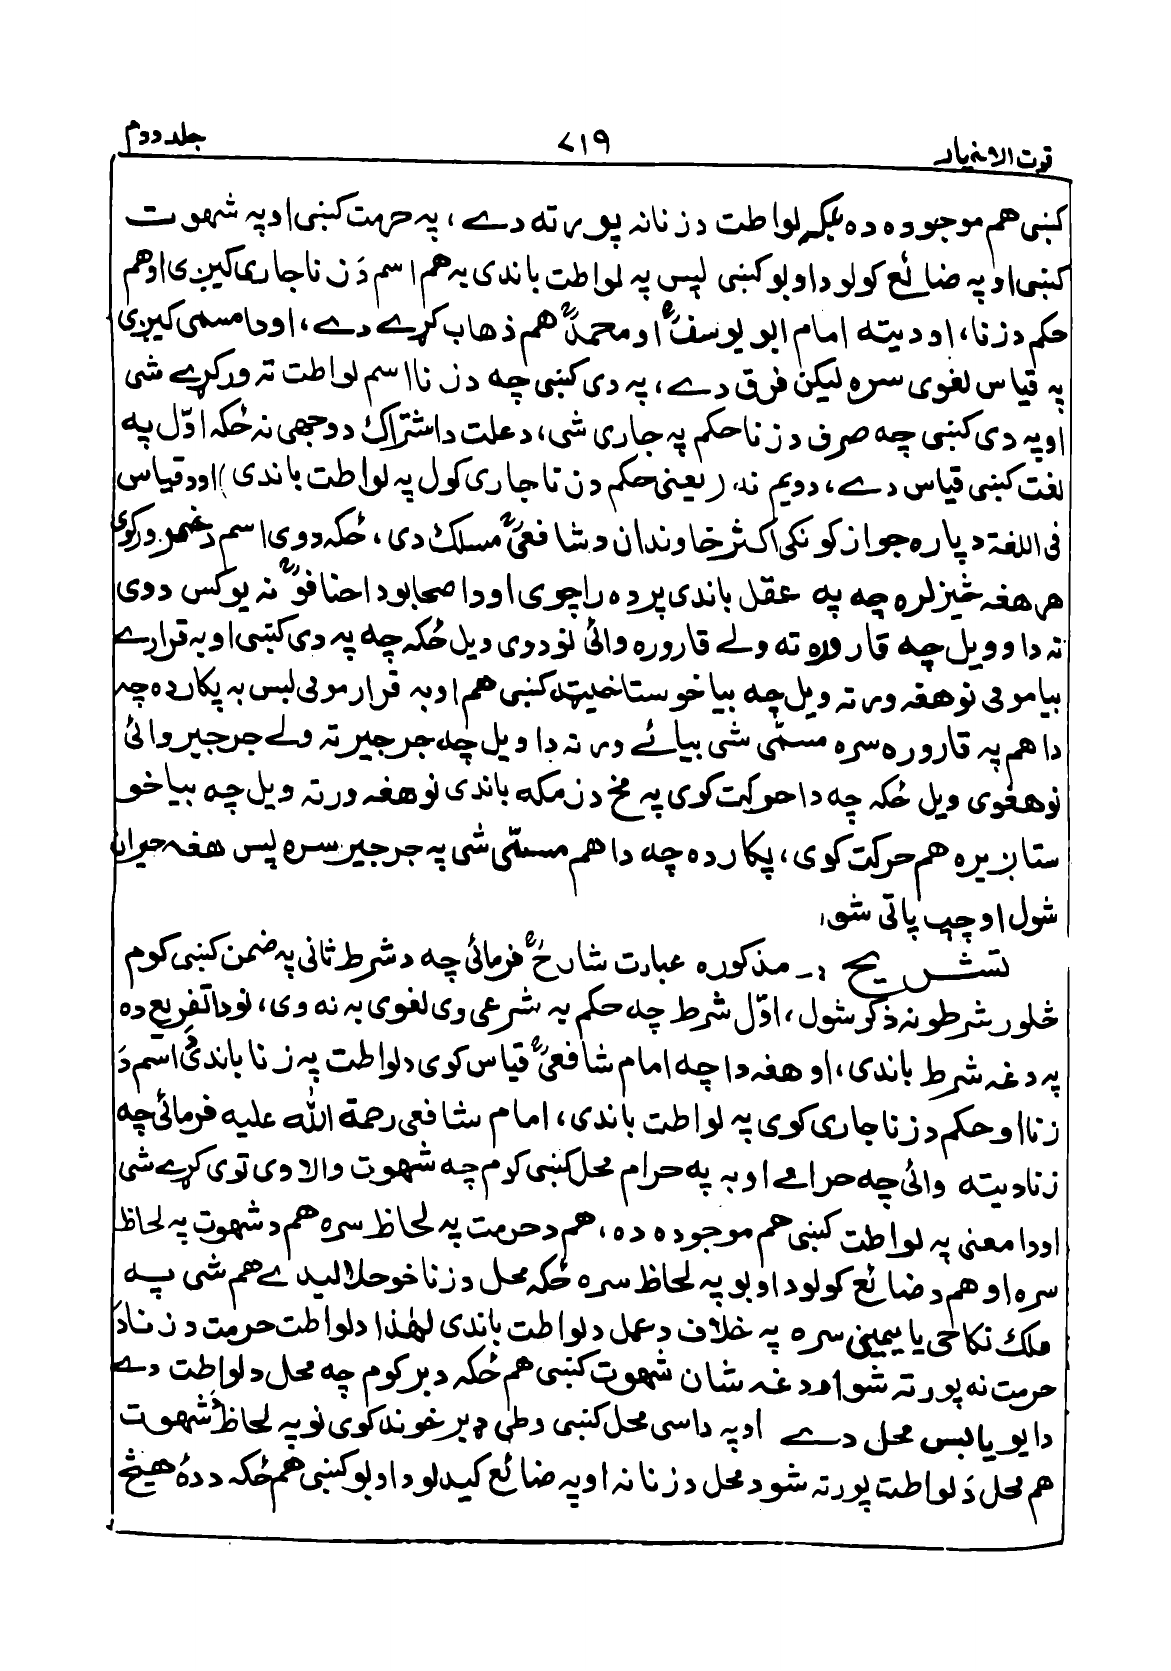 قوت الاخیار ۷۱۹ جلد دوم
کښی هم موجوده ده بلکہ لواطت د زنا نہ پورتہ دے، پہ حرمت کښی او پہ شهوت
کښی او پہ ضائع کولو د اوبو کښی لپس پہ لواطت باندی بہ هم اسم دَ زنا جاری کیږی او هم
حکم د زنا، او دیتہ امام ابو یوسفؒ او محمدؒ هم ذهاب کړے دے، او دا مسمی کیږی
پہ قیاس لغوی سره لیکن فرق دے، پہ دی کښی چہ د زنا اسم لواطت تہ ورکړے شی
او پہ دی کښی چہ صرف د زنا حکم پہ جاری شی، د علت د اشتراک د وجهی نہ ځکہ اوّل پہ
لغت کښی قیاس دے، دویم نہ، (یعنی حکم د زنا جاری کول پہ لواطت باندی) او د قیاس
فی اللغة د پاره جواز کونکی اکثر خاوندان د شافعیؒ مسلک دی، ځکہ دوی اسم د خمر ورکوی
هر هغہ څیز لره چہ پہ عقل باندی پرده راچوی او د اصحابو د احنافوؒ نہ یو کس دوی
تہ دا وویل چہ قاروره تہ ولے قاروره وائی نو دوی ویل ځکہ چہ پہ دی کښی اوبہ قرارے
بیا مومی نو هغہ ورتہ ویل چہ بیا خو ستا خیټہ کښی هم اوبہ قرار مومی لپس بہ پکار ده چہ
دا هم پہ قاروره سره مسمّی شی بیائے ورتہ دا ویل چہ جرجیر تہ ولے جرجیر وائی
نو هغوی ویل ځکہ چہ دا حرکت کوی پہ مخ د زمکہ باندی نو هغہ ورتہ ویل چہ بیا خو
ستا ږیره هم حرکت کوی، پکار ده چہ دا هم مسمّی شی پہ جرجیر سره پس هغہ حیران
شول او چپ پاتی شو،
تشریح :- مذکوره عبارت شارحؒ فرمائی چہ د شرط ثانی پہ ضمن کښی کوم
څلور شرطونہ ذکر شول، اوّل شرط چہ حکم بہ شرعی وی لغوی بہ نہ وی، نو دا تفریع ده
پہ دغہ شرط باندی، او هغہ دا چہ امام شافعیؒ قیاس کوی د لواطت پہ زنا باندی اسم دَ
زنا او حکم د زنا جاری کوی پہ لواطت باندی، امام شافعی رحمة اللّٰه علیه فرمائی چہ
زنا دیتہ وائی چہ حرامے اوبہ پہ حرام محل کښی کوم چہ شهوت والا وی توی کړے شی
او دا معنی پہ لواطت کښی هم موجوده ده، هم د حرمت پہ لحاظ سره هم د شهوت پہ لحاظ
سره او هم د ضائع کولو د اوبو پہ لحاظ سره ځکہ محل د زنا خو حلالیدے هم شی پہ
ملک نکاحی یا یمینی سره پہ خلاف د عمل د لواطت باندی لهٰذا د لواطت حرمت د زنا دَ
حرمت نہ پورتہ شو او دغہ شان شهوت کښی هم ځکہ دبر کوم چہ محل د لواطت دے
دا یو یابس محل دے او پہ داسی محل کښی وطی ډیر خوند کوی نو پہ لحاظ شهوت
هم محل دَ لواطت پورتہ شو د محل د زنا نہ او پہ ضائع کیدلو د اوبو کښی هم ځکہ د ده هیڅ